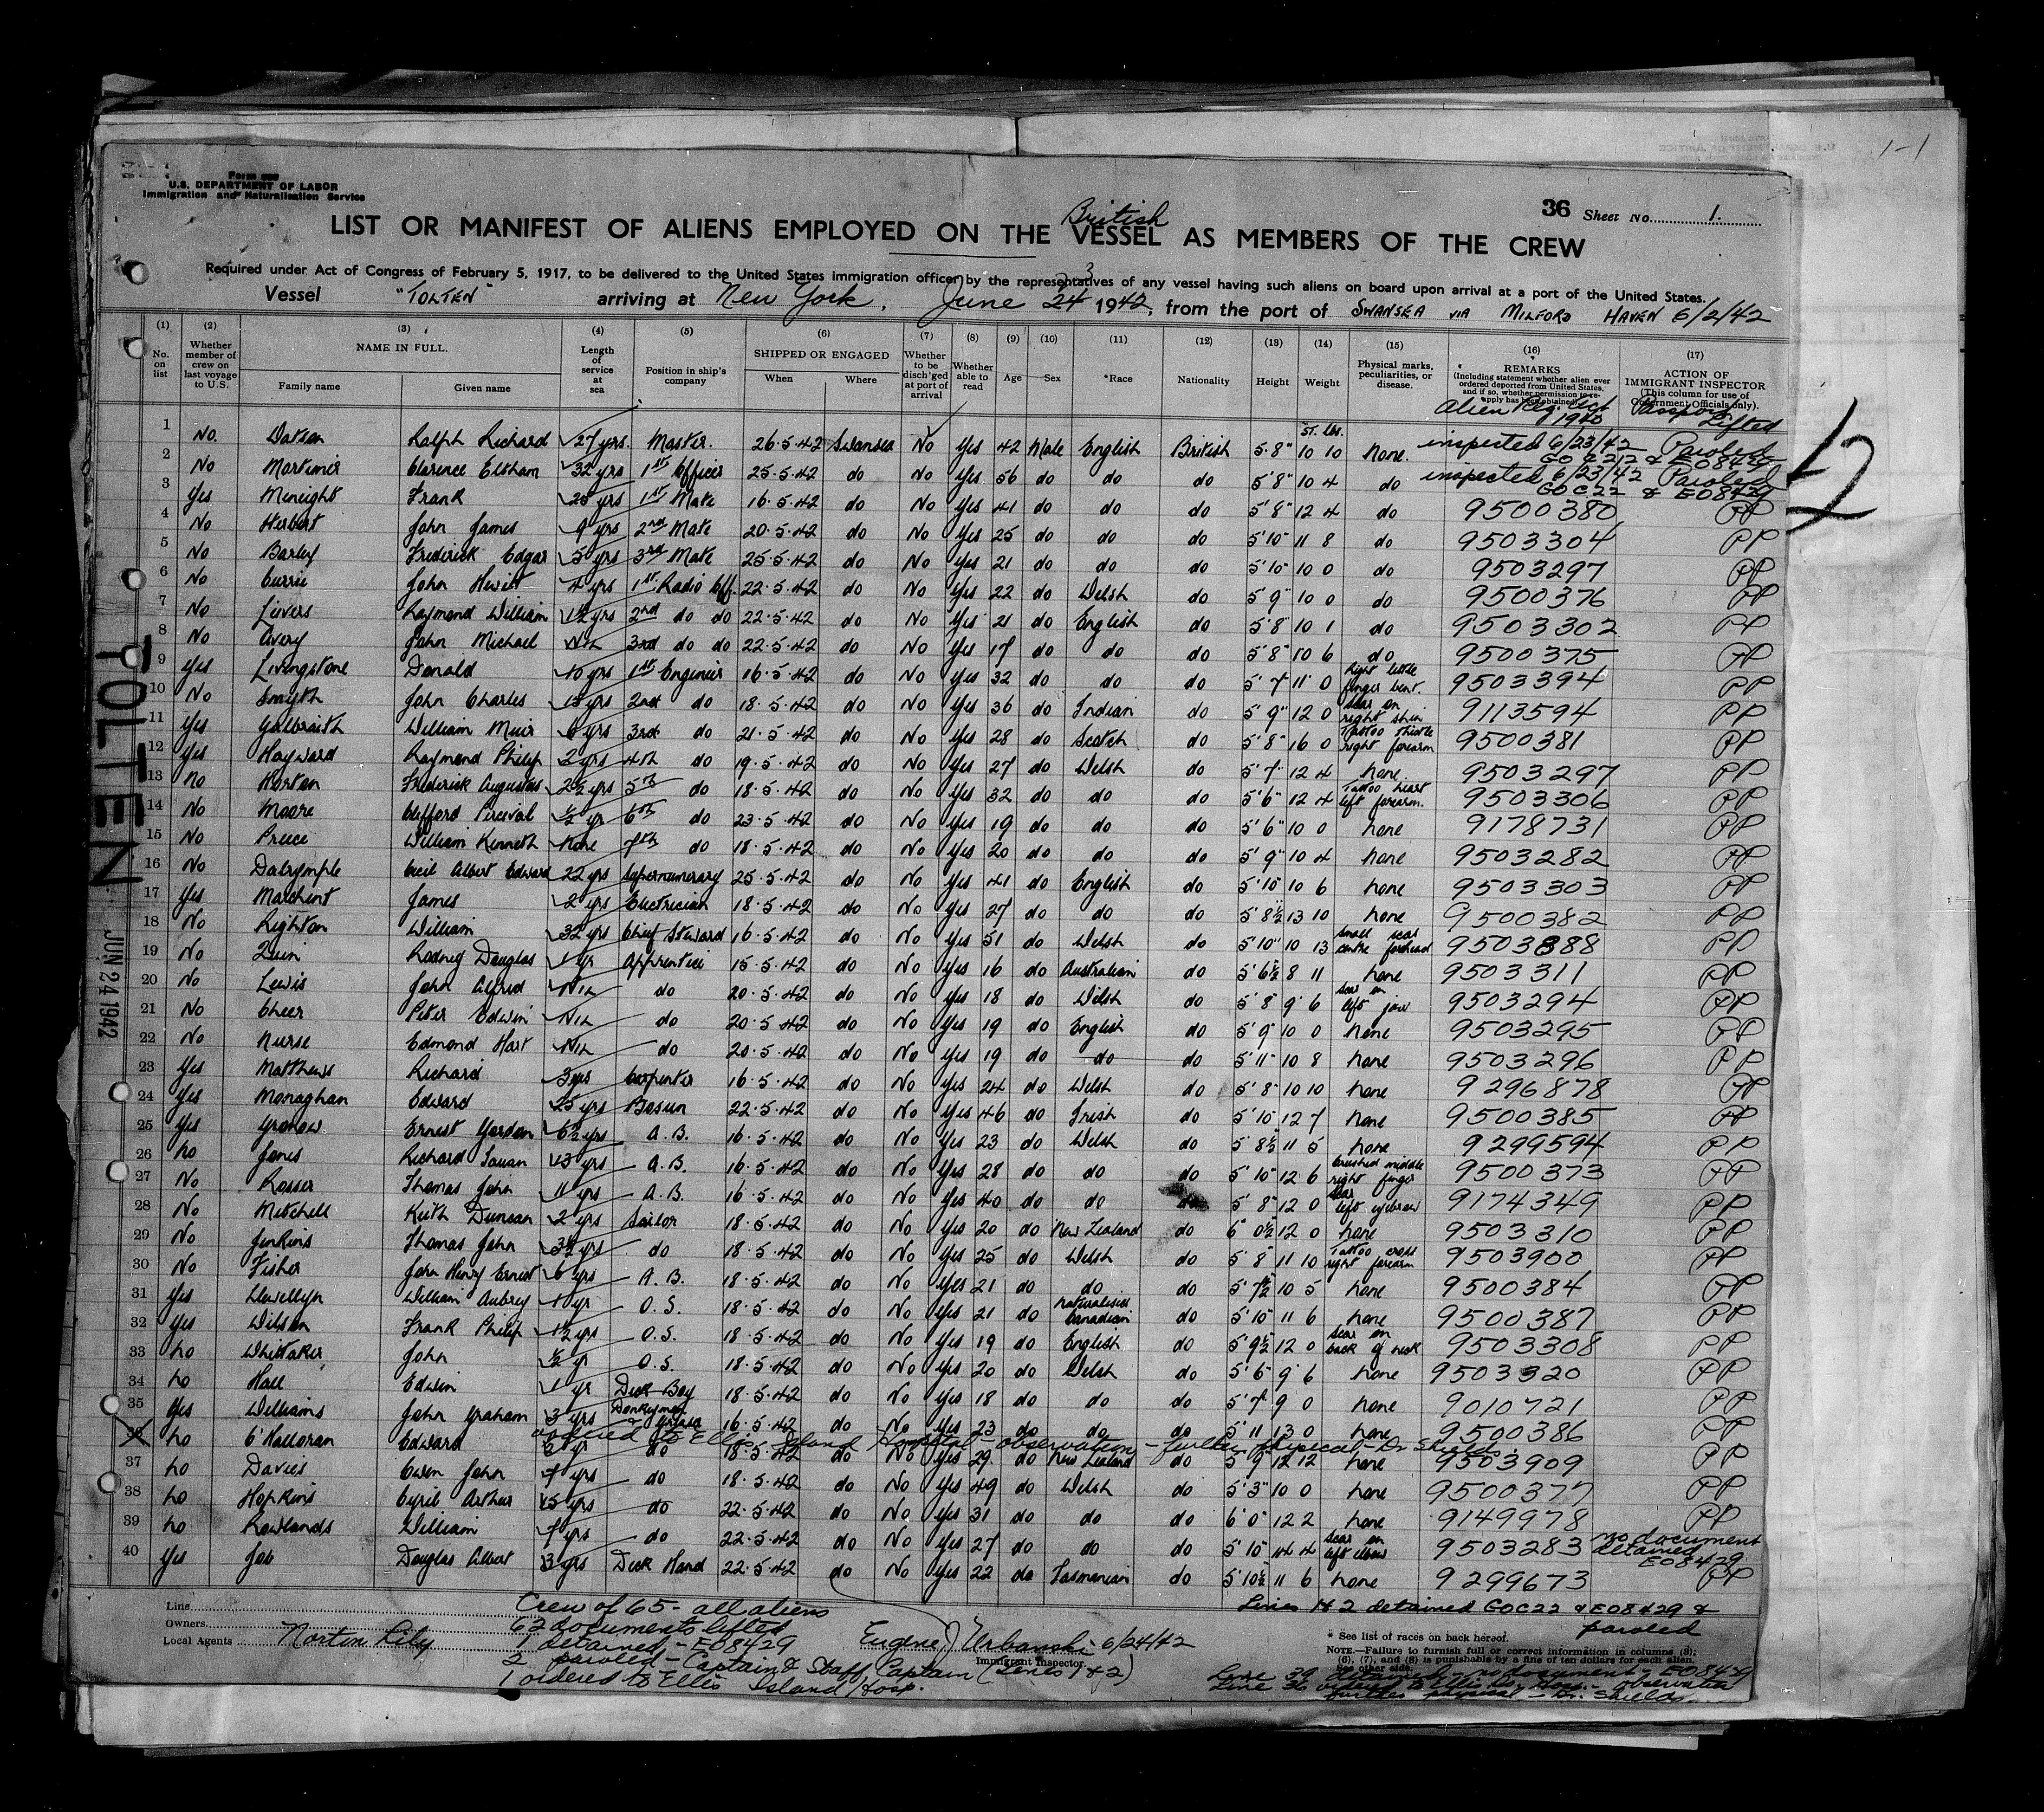 U.S. DEPARTMENT OF LABOR
Immigration and Naturalisation Service
36 Sheet No. 1.
1-1
British
LIST OR MANIFEST OF ALIENS EMPLOYED ON THE VESSEL AS MEMBERS OF THE CREW
Required under Act of Congress of February 5, 1917, to be delivered to the United States immigration officer by the representatives of any vessel having such aliens on board upon arrival at a port of the United States.
Vessel "TOLTEN" arriving at New York, June 24 3 1942, from the port of SWANSEA VIA MILFORD HAVEN 6/2/42
(1) No. on list
(2) Whether member of crew on last voyage to U.S.
(3) NAME IN FULL. Family name Given name
(4) Length of service at sea
(5) Position in ship's company
(6) SHIPPED OR ENGAGED When Where
(7) Whether to be disch'ged at port of arrival
(8) Whether able to read
(9) Age
(10) Sex
(11) *Race
(12) Nationality
(13) Height
(14) Weight
(15) Physical marks, peculiarities, or disease.
(16) REMARKS (Including statement whether alien ever ordered deported from United States, and if so, whether permission to re-apply has been obtained)
(17) ACTION OF IMMIGRANT INSPECTOR (This column for use of Government Officials only).
Alien Reg. Act 1940 Passports Lifted
ST. LBS.
1 No. Ralph Richard 27 yrs. Master. 26.5.42 Swansea No Yes 42 Male English British 5.8" 10 10 None. inspected 6/23/42 Paroled GOC 22 & E08429
2 No Mortimer Clarence Eltham 32 yrs 1st Officer 25.5.42 do No Yes 56 do do do 5'8" 10 4 do inspected 6/23/42 Paroled GOC22 & E08429
3 Yes Frank 25 yrs 1st Mate 16.5.42 do No Yes 41 do do do 5'8" 12 4 do 9500380 PP
4 No Herbert John James 9 yrs 2nd Mate 20.5.42 do No Yes 25 do do do 5'10" 11 8 do 9503304 PP
5 No Barley Frederick Edgar 5 yrs 3rd Mate 25.5.42 do No Yes 21 do do do 5'10" 10 0 do 9503297 PP
6 No Currie John Hewitt 4 yrs 1st Radio Off. 22.5.42 do No Yes 22 do Welsh do 5'9" 10 0 do 9500376 PP
7 No Livers Raymond William 1½ yrs 2nd do do 22.5.42 do No Yes 21 do English do 5'8" 10 1 do 9503302 PP
8 No Avery John Michael NIL 3rd do do 22.5.42 do No Yes 17 do do do 5'8" 10 6 do 9500375 PP
9 Yes Livingstone Donald 10 yrs 1st Engineer 16.5.42 do No Yes 32 do do do 5'7" 11 0 right little finger bent. 9503394 PP
10 No Smyth John Charles yrs 2nd do 18.5.42 do No Yes 36 do Indian do 5'9" 12 0 scar on right shin 9113594 PP
11 Yes Galbraith William Muir 6 yrs 3rd do 21.5.42 do No Yes 28 do Scotch do 5'8" 16 0 Tattoo thistle right forearm 9500381 PP
12 Yes Hayward Raymond Philip 2 yrs 4th do 19.5.42 do No Yes 27 do Welsh do 5'7" 12 4 none. 9503297 PP
13 No Horton Frederick Augustus 2½ yrs 5th do 18.5.42 do No Yes 32 do do do 5'6" 12 4 Tattoo heart left forearm. 9503306 PP
14 No Moore Clifford Percival ½ yr 6th do 23.5.42 do No Yes 19 do do do 5'6" 10 0 none 9178731 PP
15 No Preece William Kenneth None 7th do 18.5.42 do No Yes 20 do do do 5'9" 10 4 none 9503282 PP
16 No Dalrymple Cecil Albert Edward 22 yrs Supernumerary 25.5.42 do No Yes 41 do English do 5'10" 10 6 none 9503303 PP
17 Yes Marchent James 2 yrs Electrician 18.5.42 do No Yes 27 do do do 5'8½ 13 10 none 9500382 PP
18 No Righton William 32 yrs Chief Steward 16.5.42 do No Yes 51 do Welsh do 5'10" 10 13 small scar centre forehead 9503388 PP
19 No Quin Rodney Douglas 1 yr Apprentice 15.5.42 do No Yes 16 do Australian do 5'6½ 8 11 none 9503311 PP
20 No Lewis John Alfred NIL do 20.5.42 do No Yes 18 do Welsh do 5'8" 9 6 scar on left jaw 9503294 PP
21 No Cheer Peter Edwin NIL do 20.5.42 do No Yes 19 do English do 5'9" 10 0 none 9503295 PP
22 No Nurse Edmond Hart NIL do 20.5.42 do No Yes 19 do do do 5'11" 10 8 none 9503296 PP
23 Yes Matthews Richard 3 yrs Carpenter 16.5.42 do No Yes 24 do Welsh do 5'8" 10 10 none 9296878 PP
24 Yes Monaghan Edward 25 yrs Bosun 22.5.42 do No Yes 46 do Irish do 5'10" 12 7 none 9500385 PP
25 Yes Gronow Ernest Gordon 6½ yrs A.B. 16.5.42 do No Yes 23 do Welsh do 5'8½ 11 5 none 9299594 PP
26 No Jones Richard 13 yrs A.B. 16.5.42 do No Yes 28 do do do 5'10" 12 6 crushed middle right finger 9500373 PP
27 No Rosser Thomas John 11 yrs A.B. 16.5.42 do No Yes 40 do do do 5'8" 12 0 scar left eyebrow 9174349 PP
28 No Mitchell Keith Duncan 2 yrs Sailor 18.5.42 do No Yes 20 do New Zealand do 6'0½ 12 0 none 9503310 PP
29 No Jenkins Thomas John 3½ yrs do 18.5.42 do No Yes 25 do Welsh do 5'8" 11 10 Tattoo cross right forearm 9503900 PP
30 No Fisher John Henry Ernest 6 yrs A.B. 18.5.42 do No Yes 21 do do do 5'7½ 10 5 none 9500384 PP
31 Yes Llewellyn William Aubrey 1 yr O.S. 18.5.42 do No Yes 21 do naturalised Canadian do 5'10" 11 6 none 9500387 PP
32 Yes Wilson Frank Philip 1½ yrs O.S. 18.5.42 do No Yes 19 do English do 5'9½ 12 0 scar on back of neck 9503308 PP
33 No Whittaker John ½ yr O.S. 18.5.42 do No Yes 20 do Welsh do 5'6" 9 6 none 9503320 PP
34 No Hall Edwin 1 yr Deck Boy 18.5.42 do No Yes 18 do do do 5'7" 9 0 none 9010721 PP
35 Yes Williams John Graham 3 yrs Donkeyman 16.5.42 do No Yes 23 do do do 5'11 13 0 none 9500386 PP
ordered to Ellis Island Hospital - observation - further physical - Dr Shields.
36 No O'Halloran Edward yr do 18.5.42 do No Yes 29 do New Zealand do 5'9" 12 12 none 9503909 PP
37 No Davies Owen John yrs do 18.5.42 do No Yes 49 do Welsh do 5'3" 10 0 none 9500377 PP
38 No Hopkins Cyril Arthur 15 yrs do 22.5.42 do No Yes 31 do do do 6'0" 12 2 none 9149978 PP
39 No Rowlands William yrs do 22.5.42 do No Yes 27 do do do 5'10" 14 4 scar on left elbow 9503283 no document detained E08429
40 Yes Job Douglas Albert 3 yrs Deck Hand 22.5.42 do No Yes 22 do Tasmanian do 5'10½ 11 6 none 9299673 PP
TOLTEN
JUN 24 1942
12
Line
Owners
Local Agents Norton Lily
Crew of 65 - all aliens
62 documents lifted
1 detained - E08429
2 paroled - Captain & Staff Captain (Lines 1 & 2)
1 ordered to Ellis Island Hosp.
Eugene J Urbanski 6/24/42
Immigrant Inspector.
Lines 1 & 2 detained GOC22 & E08429 & paroled
* See list of races on back hereof.
NOTE.—Failure to furnish full or correct information in columns (3); (6), (7), and (8) is punishable by a fine of ten dollars for each alien.
See other side.
Line 39 detained - no document - E08429
Line 36 ordered to Ellis Is. Hosp. - observation
further physical - Dr. Shields